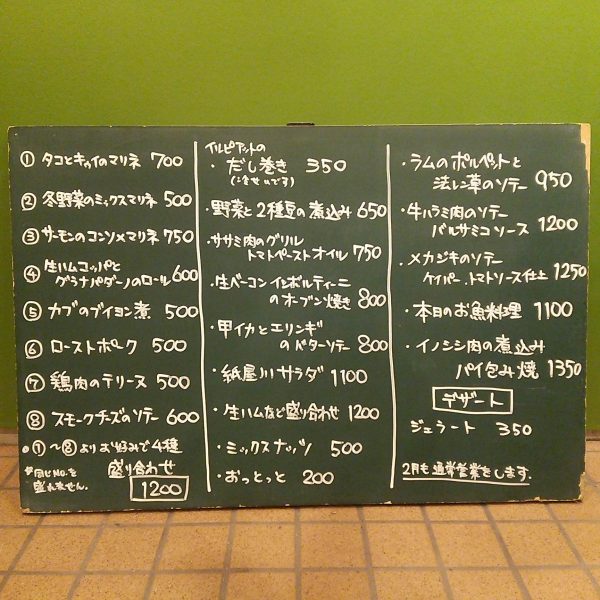 ① タコとキウイのマリネ 700
② 冬野菜のミックスマリネ 500
③ サーモンのコンソメマリネ 750
④ 生ハムコッパと
グラナパダーノのロール 600
⑤ カブのブイヨン煮 500
⑥ ローストポーク 500
⑦ 鶏肉のテリーヌ 500
⑧ スモークチーズのソテー 600
①~⑧よりお好みで4種
盛り合わせ
1200
*同じNo.を
盛れません。
イルピアットの
・だし巻き 350
・野菜と2種豆の煮込み 650
・ササミ肉のグリル
トマトペーストオイル 750
・生ベーコンインボルティーニ
のオーブン焼き 800
・甲イカとエリンギ
のバターソテー 800
・紙屋川サラダ 1100
・生ハムなど盛り合わせ 1200
・ミックスナッツ 500
・おっとっと 200
・ラムのポルペットと
法レン草のソテー 950
・牛ハラミ肉のソテー
バルサミコソース 1200
・メカジキのソテー
ケイパー、トマトソース仕上 1250
・本日のお魚料理 1100
・イノシシ肉の煮込み
パイ包み焼 1350
デザート
ジェラート 350
2月も通常営業をします。